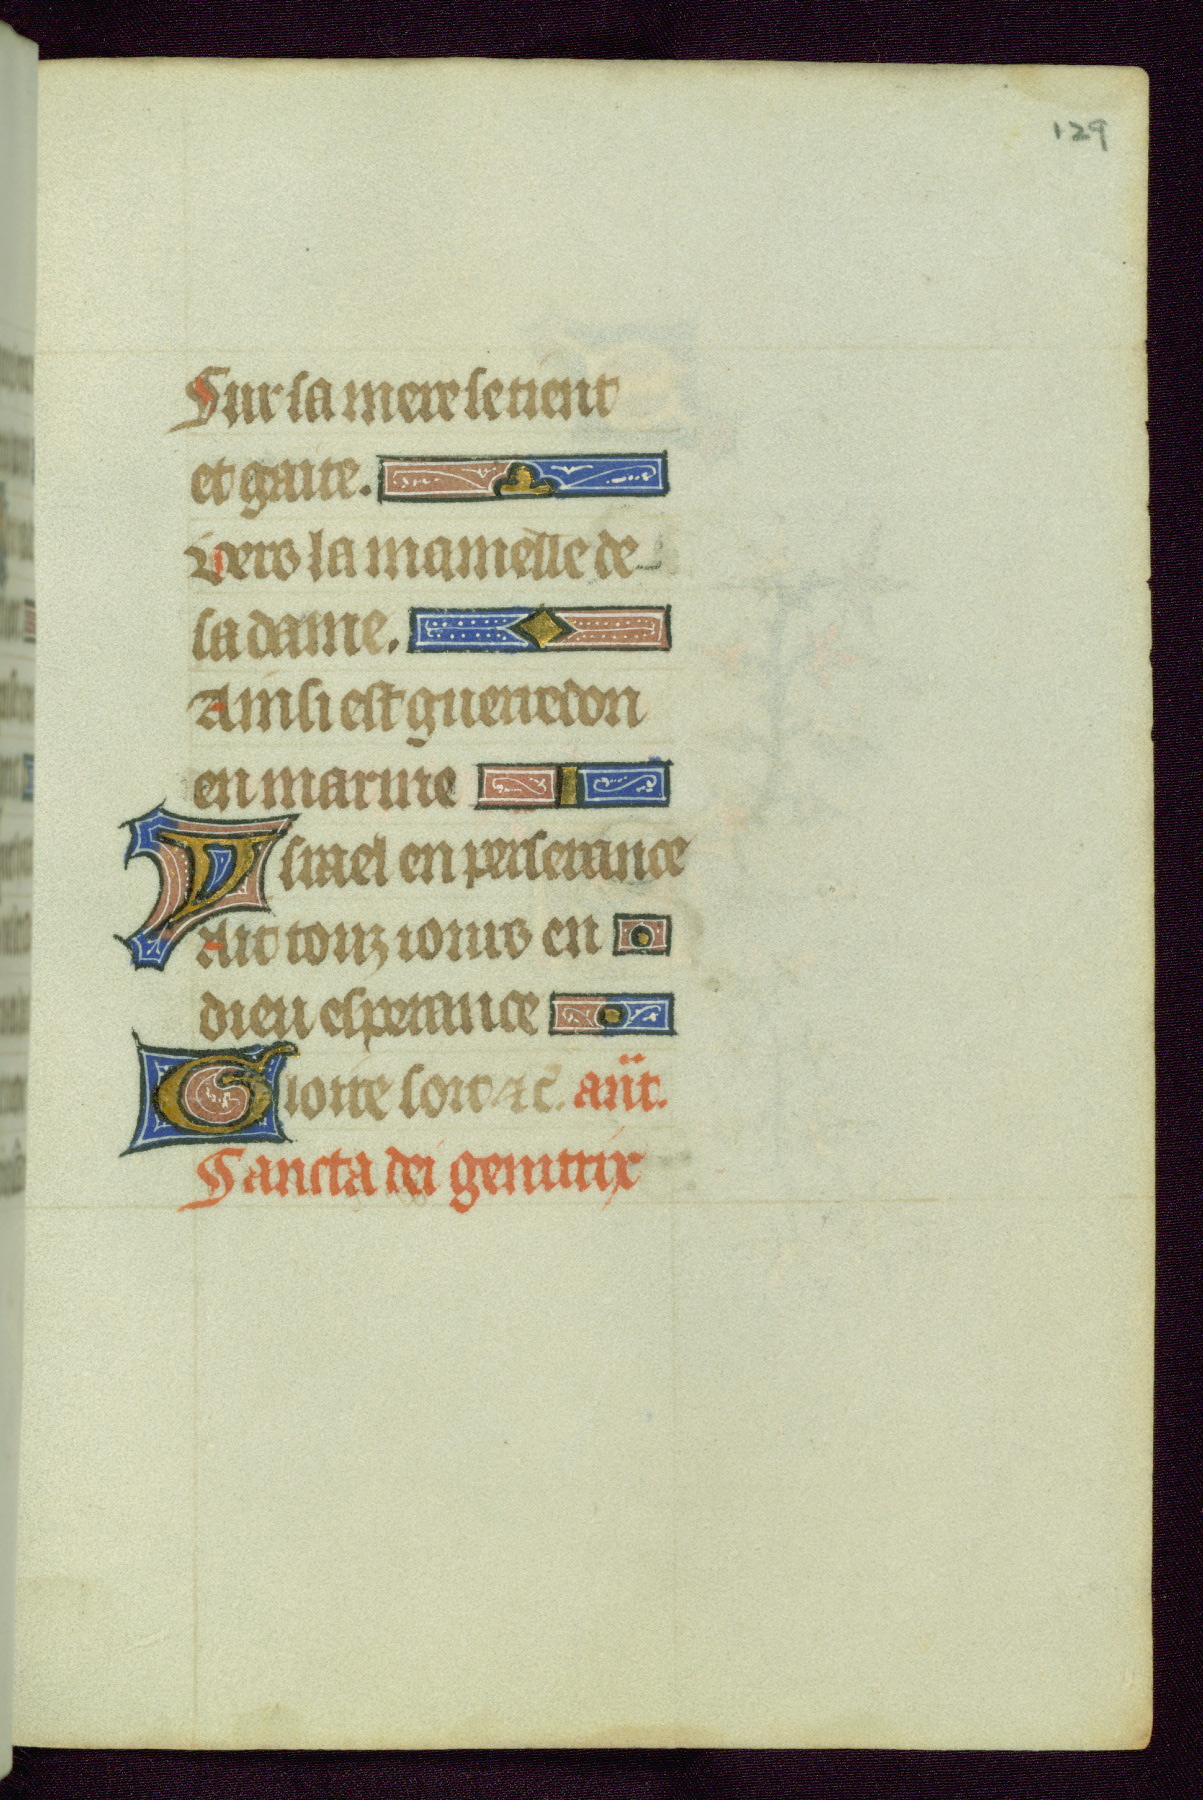 129
Sur sa mere se tient
et gaite.
vers la mamelle de
sa dame.
Ainsi est guerredon
en marme
Ysrael en perseuerance
Ait touz iours en
dieu esperance
Gloire soit ⁊c. ant.
Sancta dei genitrix